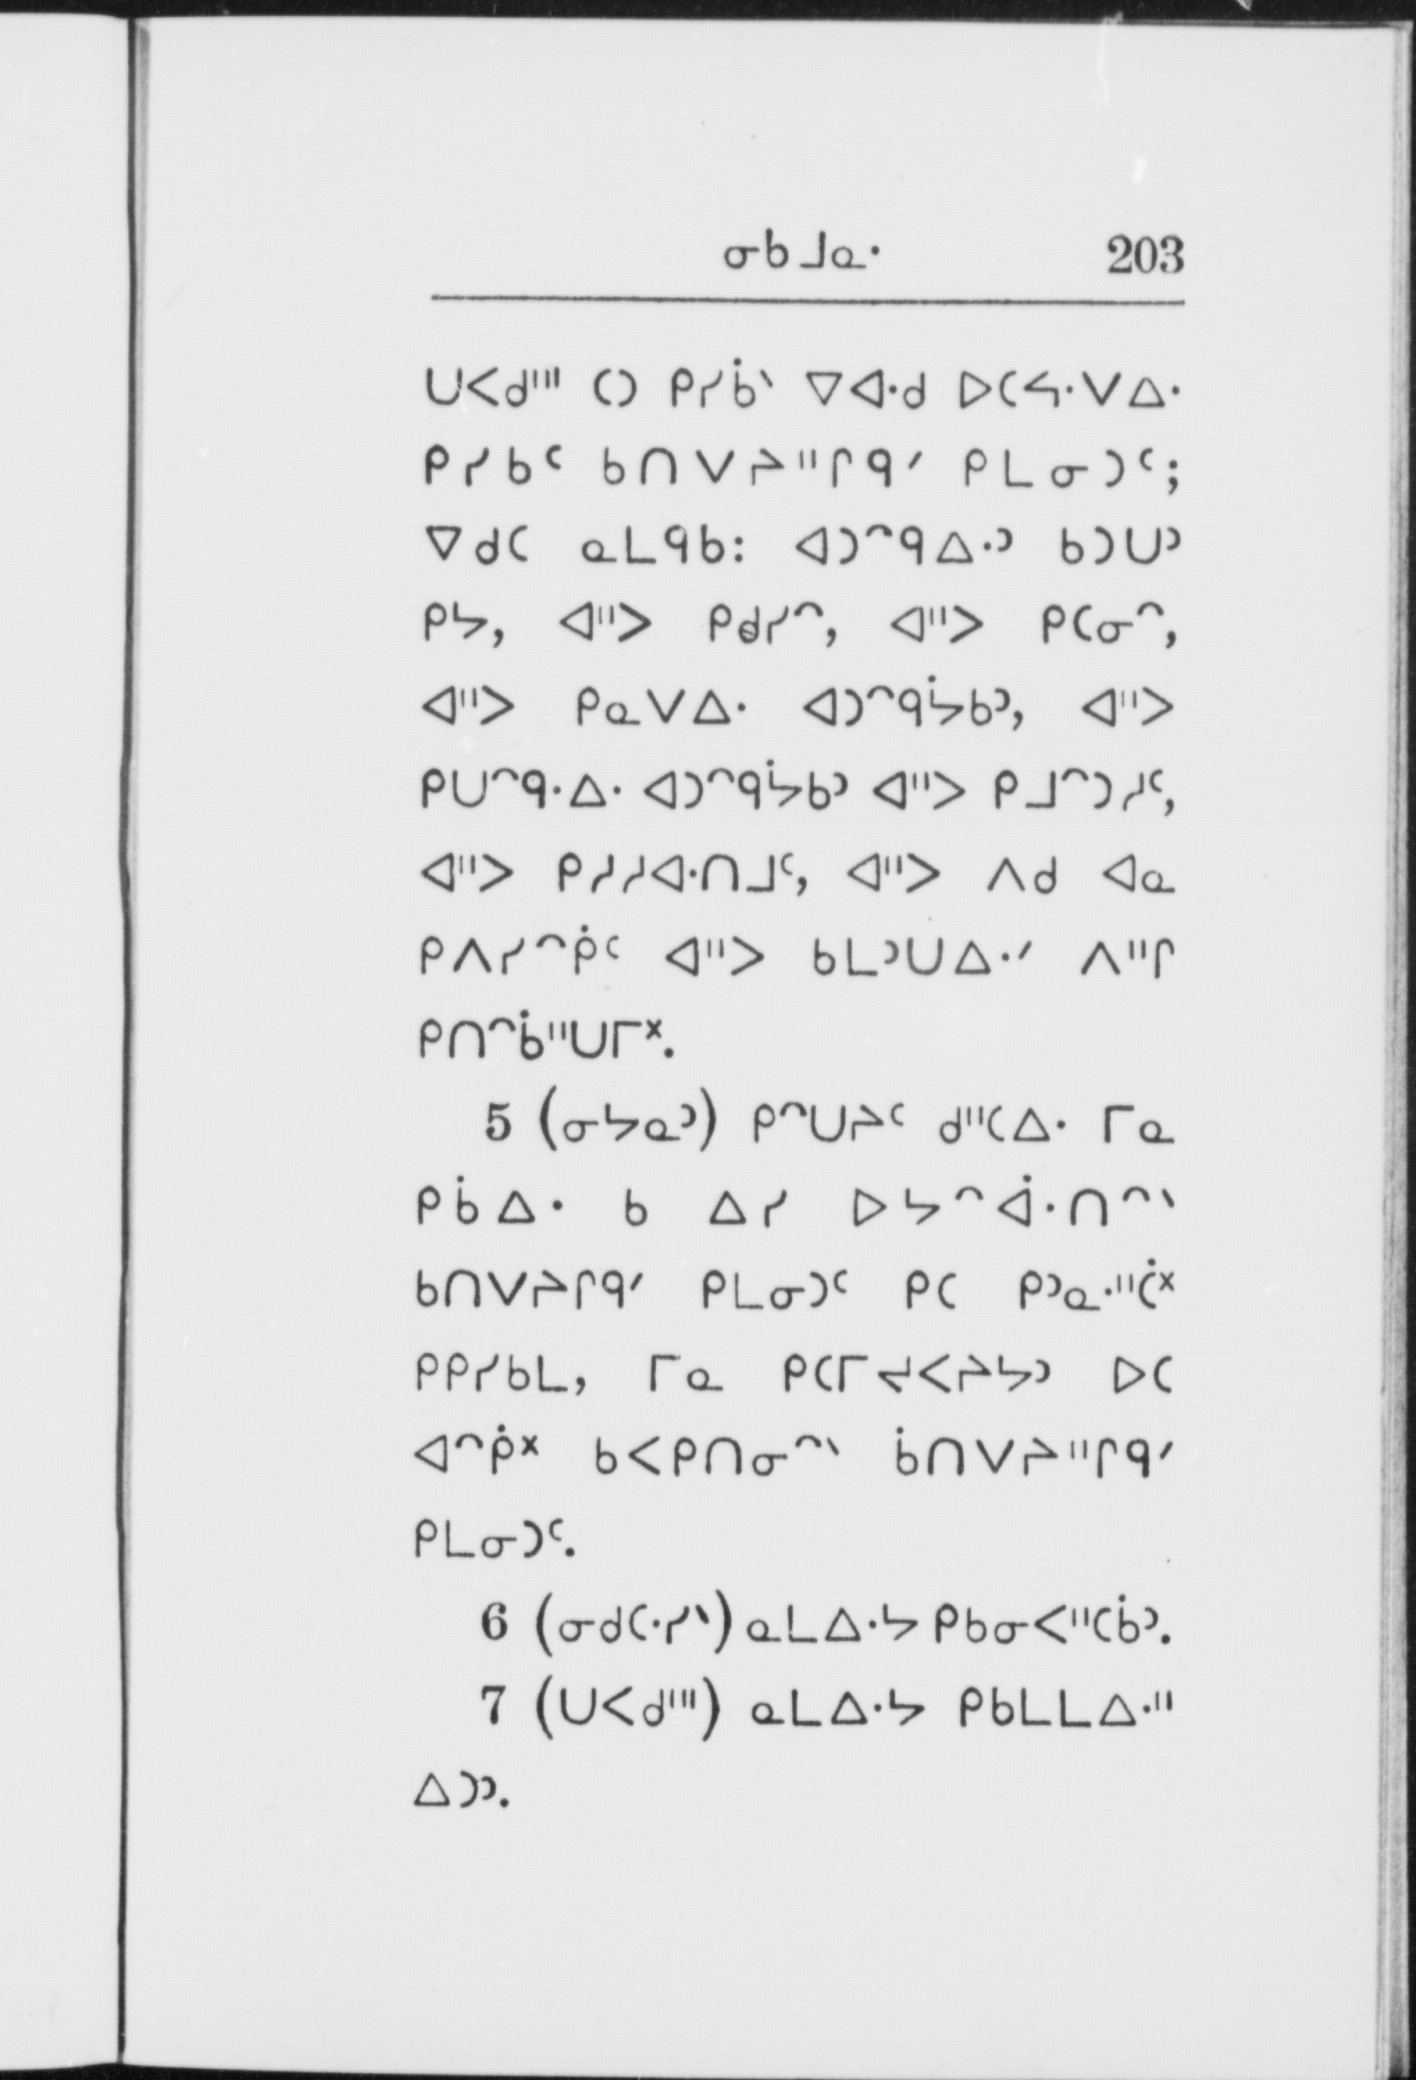 ᓂᑲᒧᓇᐧ 203
ᑌᐸᑯᑊᐦ ᑕᑐ ᑭᓯᑳᐠ ᐁᐊᐧᑯ ᐅᑕᔦᐧᐯᐃᐧ
ᑭᓯᑲᑦ ᑲᑎᐯᔨᐦᒋᑫᐟ ᑭᒪᓂᑐᑦ;
ᐁᑯᑕ ᓇᒪᑫᑲ: ᐊᑐᐢᑫᐃᐧᐣ ᑲᑐᑌᐣ
ᑭᔭ, ᐊᐦᐳ ᑭᑯᓯᐢ, ᐊᐦᐳ ᑭᑕᓂᐢ,
ᐊᐦᐳ ᑭᓇᐯᐃᐧ ᐊᑐᐢᑫᔮᑲᐣ, ᐊᐦᐳ
ᑭᑌᐢᑫᐧᐃᐧ ᐊᑐᐢᑫᔮᑲᐣ ᐊᐦᐳ ᑭᒧᐢᑐᓱᑦ,
ᐊᐦᐳ ᑭᓱᓱᐊᐧᑎᒧᑦ, ᐊᐦᐳ ᐱᑯ ᐊᓇ
ᑭᐱᓯᐢᑮᑦ ᐊᐦᐳ ᑲᒪᐣᑌᐃᐧᐟ ᐱᐦᒋ
ᑭᑎᐢᑳᐦᑌᒥᕽ.
5 (ᓂᔭᓇᐣ) ᑭᐢᑌᔨᑦ ᑯᐦᑕᐃᐧ ᒥᓇ
ᑭᑳᐃᐧ ᑲ ᐃᓯ ᐅᔭᐢᐋᐧᑎᐢᐠ
ᑲᑎᐯᔨᒋᑫᐟ ᑭᒪᓂᑐᑦ ᑭᑕ ᑭᐣᓇᐧᐦᑖᕽ
ᑭᑭᓯᑲᒪ, ᒥᓇ ᑭᑕᒥᔪᐸᔨᔭᐣ ᐅᑕ
ᐊᐢᑮᕽ ᑲᐸᑭᑎᓂᐢᐠ ᑳᑎᐯᔨᐦᒋᑫᐟ
ᑭᒪᓂᑐᑦ.
6 (ᓂᑯᑕᐧᓯᐠ) ᓇᒪᐃᐧᔭ ᑭᑲᓂᐸᐦᑕᑳᐣ.
7 (ᑌᐸᑯᑊᐦ) ᓇᒪᐃᐧᔭ ᑭᑲᒪᒪᐃᐧᐦ
ᐃᑐᐣ.